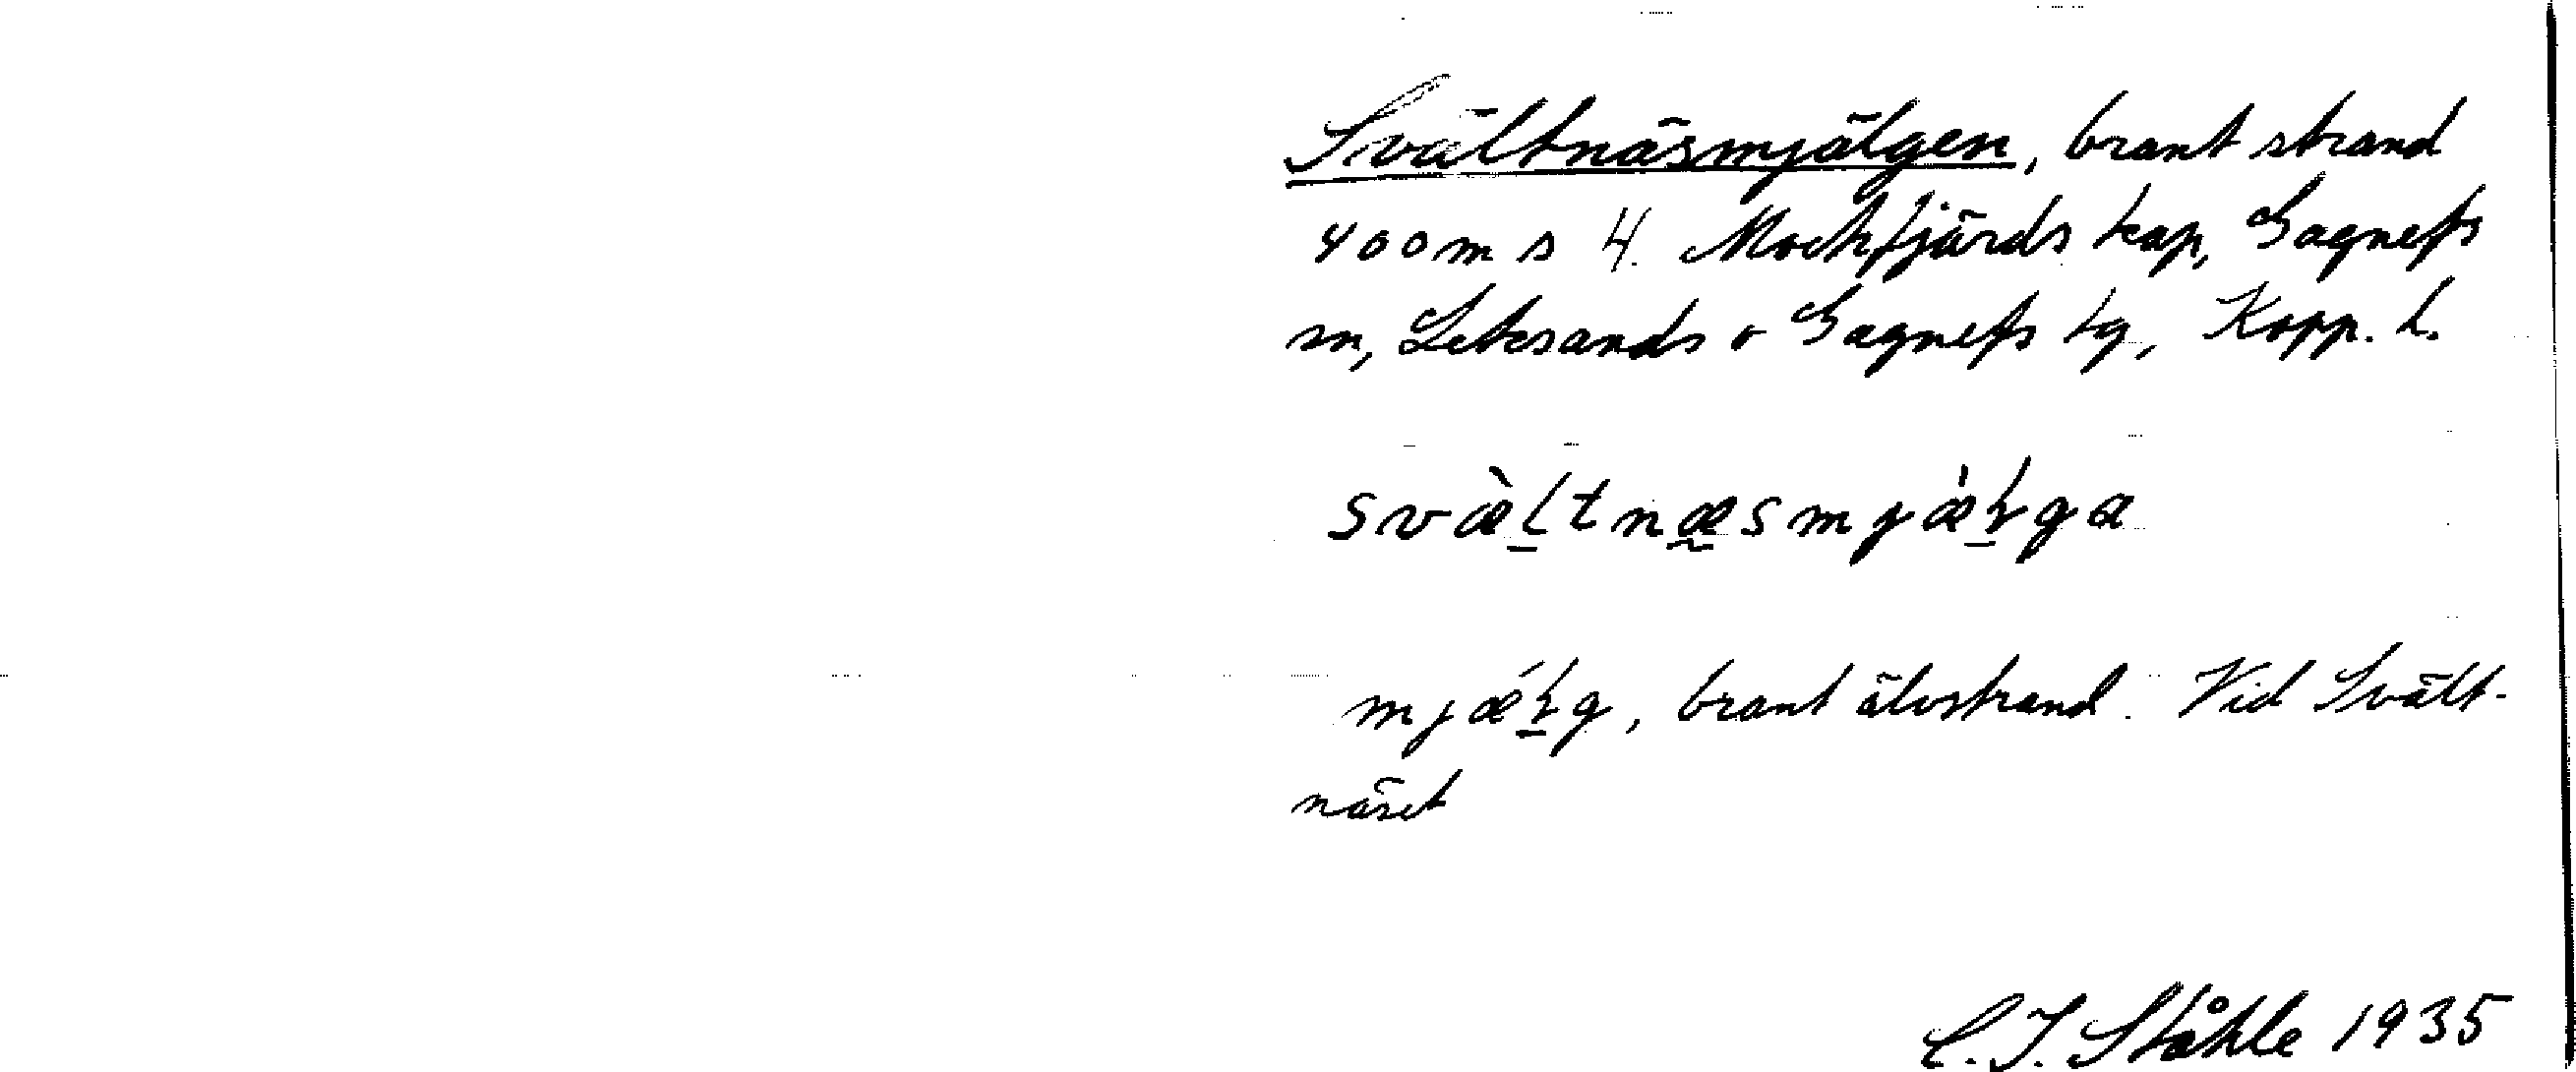 Svältnäsmjälgen, brant strand
400 m s 4. Mockfjärds kap, Gagnefs
sn, Leksands o Gagnefs tg, Kopp. l.
svæ̀l̠tnæ̰smjæ̀ɫ̠ga
mjǽɫ̠g, brant älvstrand. Vid Svält-
näset
C. I. Ståhle 1935